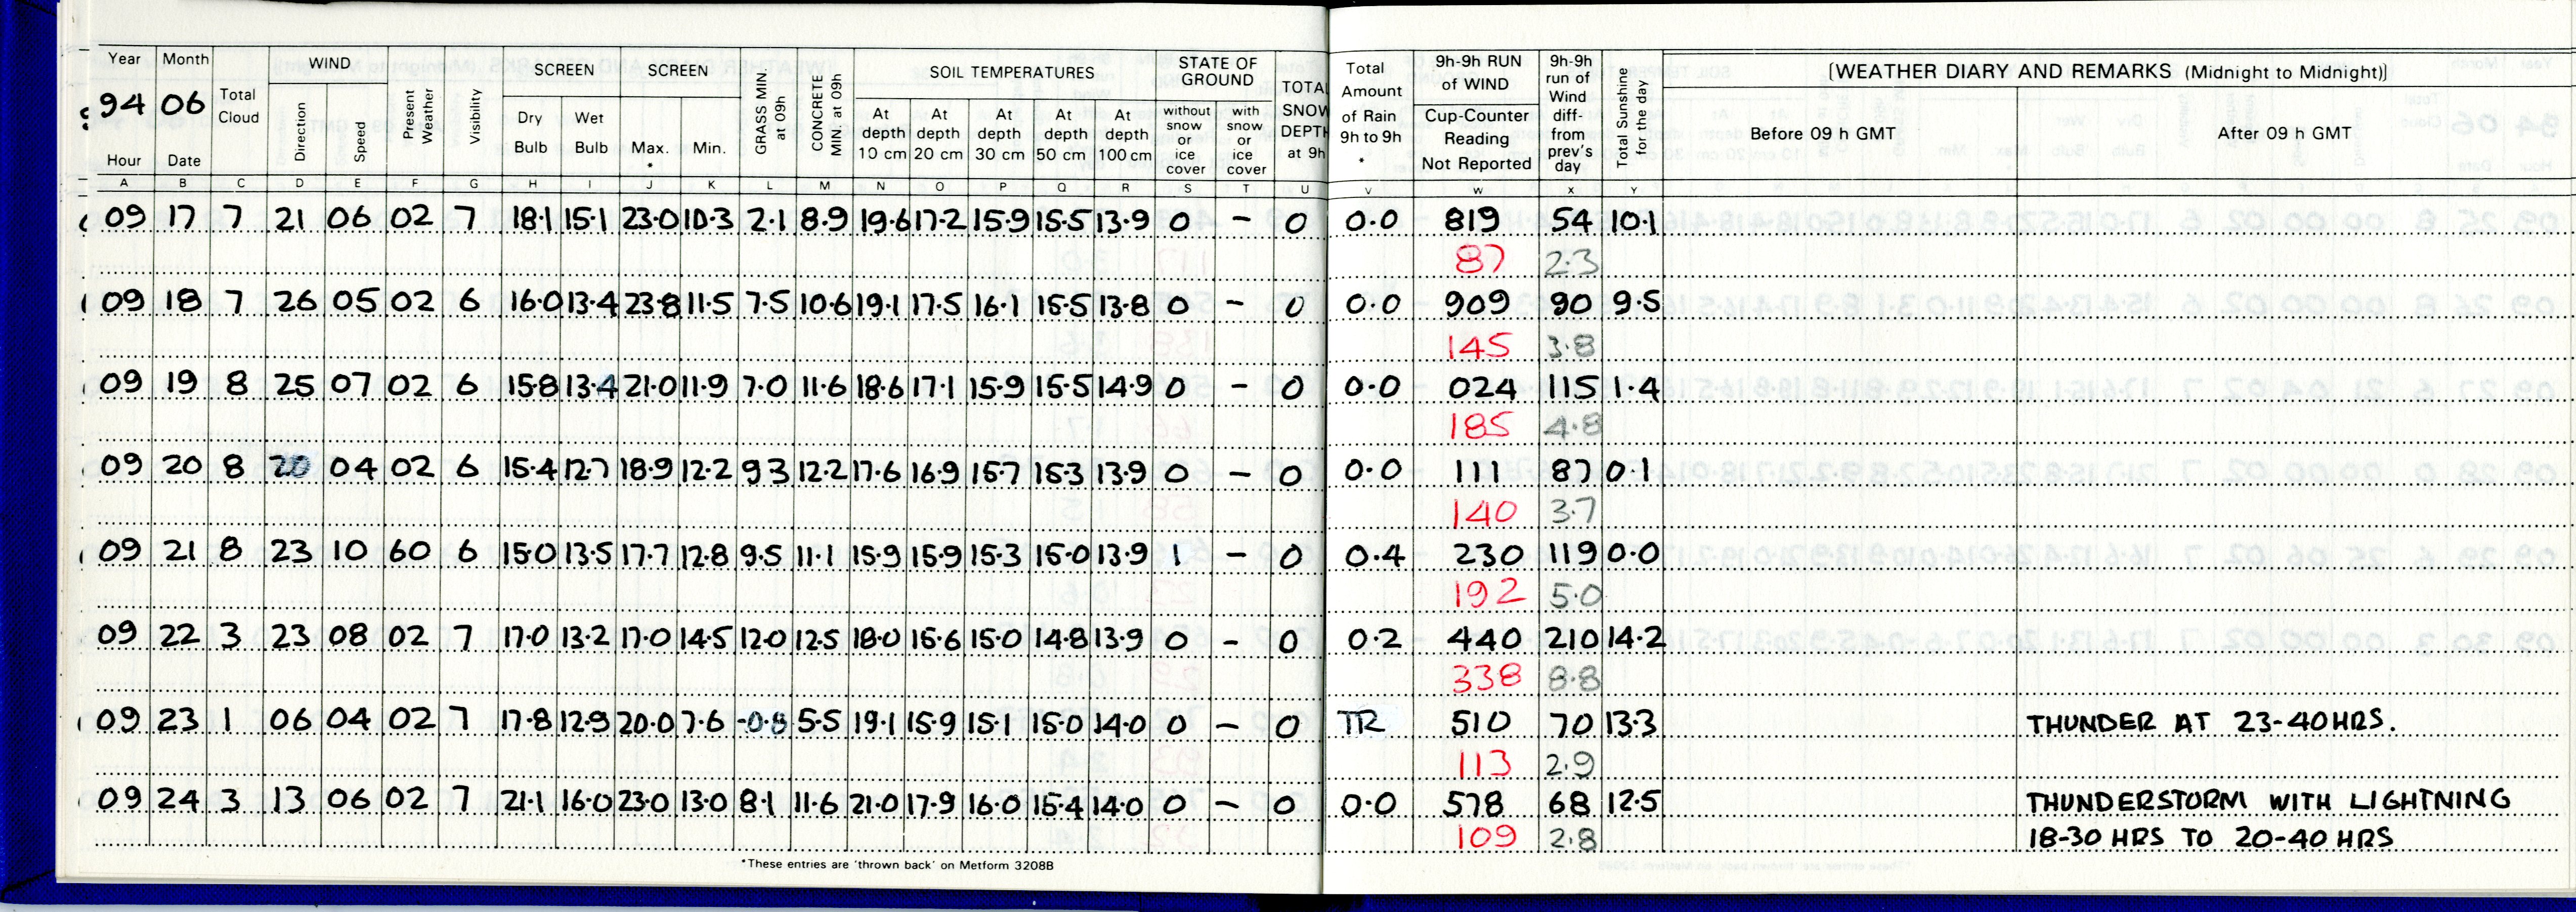 Year Month WIND SCREEN SCREEN GRASS MIN. at 09h CONCRETE MIN. at 09h SOIL TEMPERATURES STATE OF GROUND TOTAL SNOW DEPTH at 9h Total Amount of Rain 9h to 9h * 9h-9h RUN of WIND 9h-9h run of Wind diff- from prev's day Total Sunshine for the day (WEATHER DIARY AND REMARKS (Midnight to Midnight))
94 06 Total Cloud Direction Speed Present Weather Visibility Dry Bulb Wet Bulb Max. * Min. At depth 10 cm At depth 20 cm At depth 30 cm At depth 50 cm At depth 100 cm without snow or ice cover with snow or ice cover Cup-Counter Reading Not Reported Before 09 h GMT After 09 h GMT
Hour Date
A B C D E F G H I J K L M N O P Q R S T U V W X Y
09 17 7 21 06 02 7 18.1 15.1 23.0 10.3 2.1 8.9 19.6 17.2 15.9 15.5 13.9 0 - 0 0.0 819 54 10.1
87 2.3
09 18 7 26 05 02 6 16.0 13.4 23.8 11.5 7.5 10.6 19.1 17.5 16.1 15.5 13.8 0 - 0 0.0 909 90 9.5
145 3.8
09 19 8 25 07 02 6 15.8 13.4 21.0 11.9 7.0 11.6 18.6 17.1 15.9 15.5 14.9 0 - 0 0.0 024 115 1.4
185 4.8
09 20 8 20 04 02 6 15.4 12.7 18.9 12.2 9.3 12.2 17.6 16.9 15.7 15.3 13.9 0 - 0 0.0 111 87 0.1
140 3.7
09 21 8 23 10 60 6 15.0 13.5 17.7 12.8 9.5 11.1 15.9 15.9 15.3 15.0 13.9 1 - 0 0.4 230 119 0.0
192 5.0
09 22 3 23 08 02 7 17.0 13.2 17.0 14.5 12.0 12.5 18.0 15.6 15.0 14.8 13.9 0 - 0 0.2 440 210 14.2
338 8.8
09 23 1 06 04 02 7 17.8 12.9 20.0 7.6 -0.8 5.5 19.1 15.9 15.1 15.0 14.0 0 - 0 TR 510 70 13.3 THUNDER AT 23-40HRS.
113 2.9
09 24 3 13 06 02 7 21.1 16.0 23.0 13.0 8.1 11.6 21.0 17.9 16.0 15.4 14.0 0 - 0 0.0 578 68 12.5 THUNDERSTORM WITH LIGHTNING
109 2.8 18-30 HRS TO 20-40 HRS
*These entries are 'thrown back' on Metform 3208B